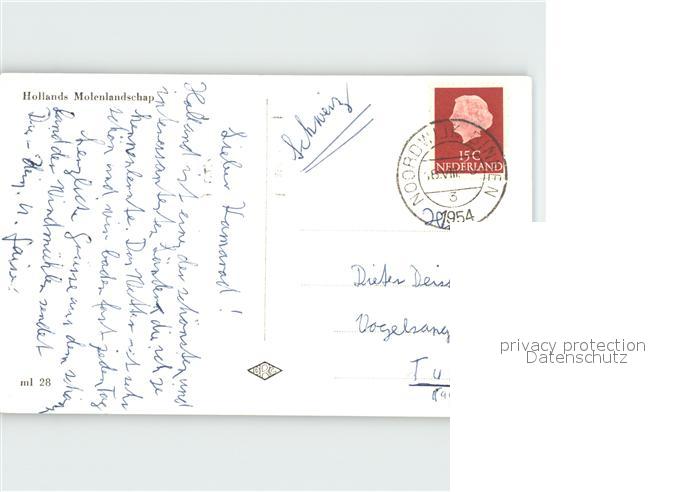 Hollands Molenlandschap
Lieber Kamarad!
Holland ist eine der schönsten und
interessantesten Länder, die ich je
kennenlernte. Das Wetter ist sehr
schön und wir baden fast jeden Tag
herzliche Grüsse aus dem schönen
Land der Windmühlen sendet
Dir
ml 28
Schweiz
15 C
NEDERLAND
NOORDWIJK BINNEN
3
1954
Dieter Deiss
Vogelsang
privacy protection
Datenschutz